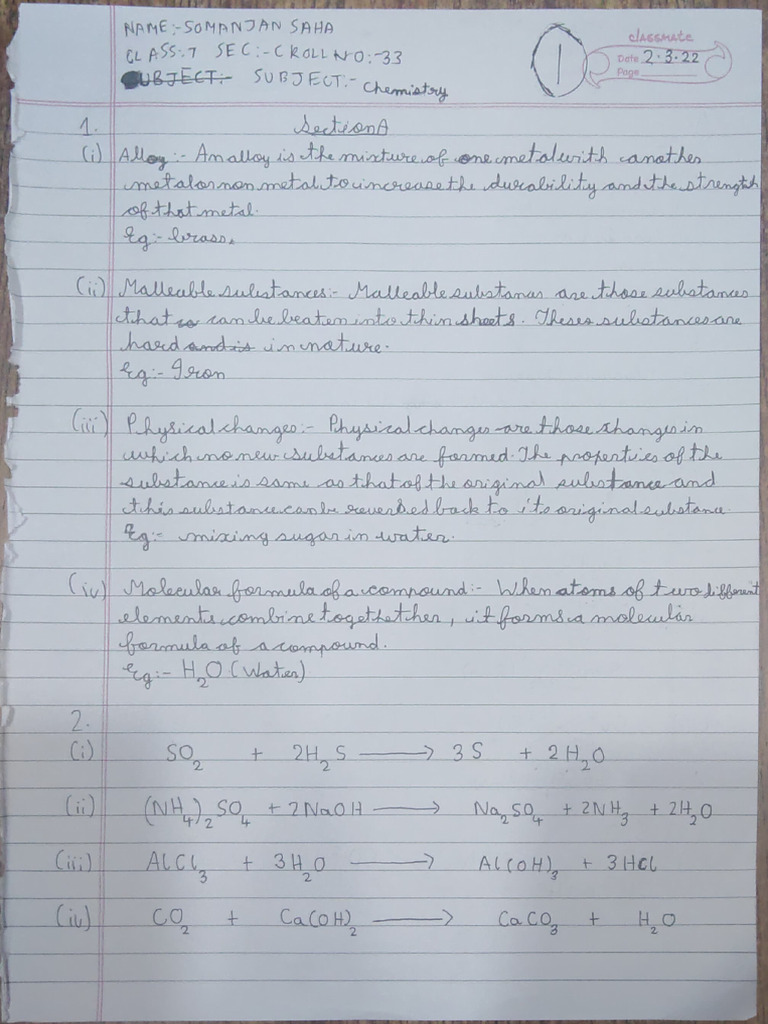 NAME:-SOMANJAN SAHA
CLASS:7 SEC:-C ROLL NO:-33
SUBJECT:- SUBJECT:- Chemistry
1
classmate
Date 2.3.22
Page
1. Section A
(i) Alloy:- An alloy is the mixture of one metal with another
metal or non metal to increase the durability and the strength
of that metal.
Eg:- brass.
(ii) Malleable substances:- Malleable substances are those substances
that can be beaten into thin sheets. Theses substances are
hard and is in nature.
Eg:- Iron
(iii) Physical changes:- Physical changes are those changes in
which no new substances are formed. The properties of the
substance is same as that of the original substance and
this substance can be reversed back to its original substance.
Eg:- mixing sugar in water.
(iv) Molecular formula of a compound:- When atoms of two different
elements combine togethether, it forms a molecular
formula of a compound.
Eg:- H₂O (Water)
2.
(i) SO₂ + 2H₂S ⟶ 3S + 2H₂O
(ii) (NH₄)₂SO₄ + 2NaOH ⟶ Na₂SO₄ + 2NH₃ + 2H₂O
(iii) AlCl₃ + 3H₂O ⟶ Al(OH)₃ + 3HCl
(iv) CO₂ + Ca(OH)₂ ⟶ CaCO₃ + H₂O